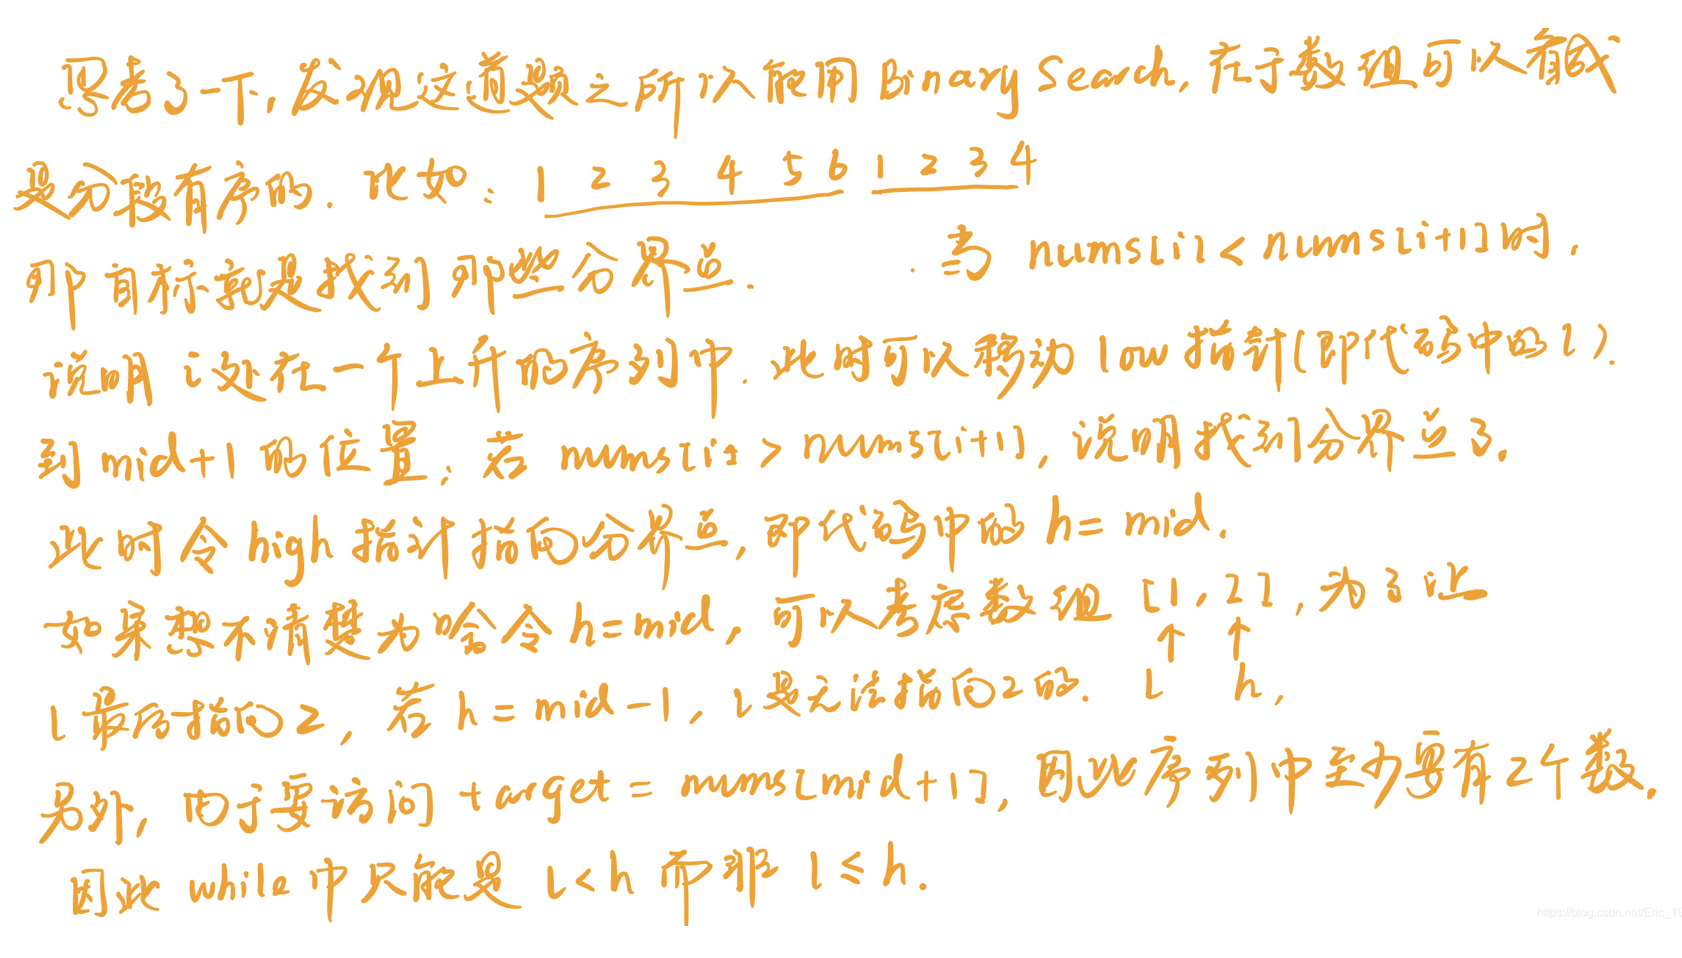 思考了一下，发现这道题之所以能用 Binary Search, 在于数组可以看成
是分段有序的. 比如: 1 2 3 4 5 6 1 2 3 4
那目标就是找到那些分界点. 当 nums[i] < nums[i+1] 时,
说明 i处在一个上升的序列中. 此时可以移动 low 指针(即代码中的 l).
到 mid+1 的位置; 若 nums[i] > nums[i+1], 说明找到分界点了.
此时令 high 指针指向分界点, 即代码中的 h = mid.
如果想不清楚为啥令 h=mid, 可以考虑数组 [1, 2], 为了让
l 最后指向2, 若 h = mid-1, l是无法指向2的. l h,
另外, 由于要访问 target = nums[mid+1], 因此序列中至少要有2个数.
因此 while 中只能是 l<h 而非 l ≤ h.